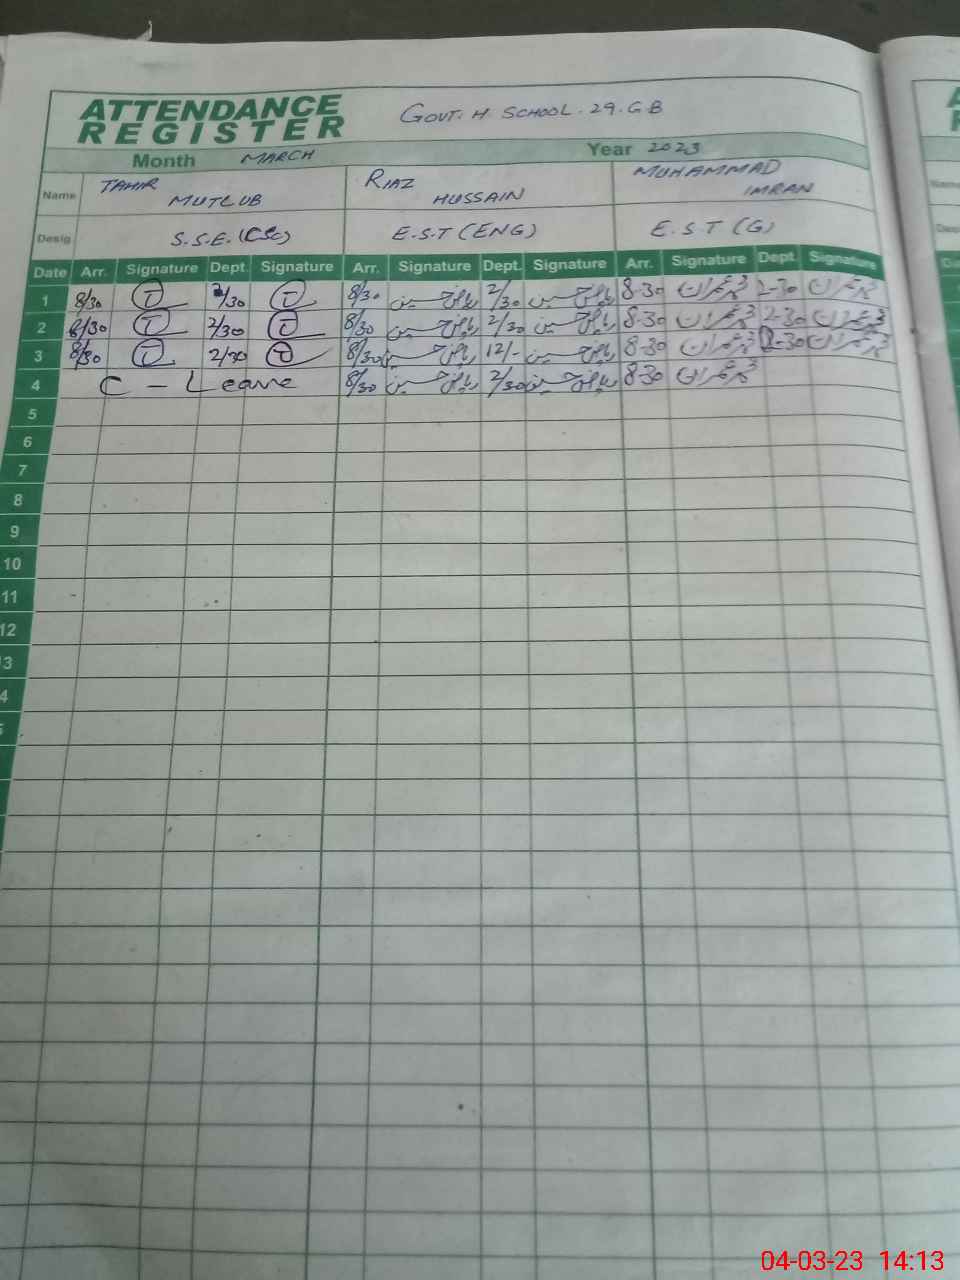 ATTENDANCE
REGISTER
GOVT. H. SCHOOL. 29. G B
Month MARCH Year 2023
Name TAHIR MUTLUB RIAZ HUSSAIN MUHAMMAD IMRAN
Desig S.S.E.(CSc) E.S.T (ENG) E.S.T (G)
Date Arr. Signature Dept. Signature Arr. Signature Dept. Signature Arr. Signature Dept. Signature
1 8/30 2/30 8/30 ریاض حسین 2/30 ریاض حسین 8-30 محمد عمران 2-30 محمد عمران
2 8/30 2/30 8/30 ریاض حسین 2/30 ریاض حسین 8-30 محمد عمران 2-30 محمد عمران
3 8/30 2/30 8/30 ریاض حسین 12/- ریاض حسین 8-30 محمد عمران 2-30 محمد عمران
4 C - Leave 8/30 ریاض حسین 2/30 ریاض حسین 8-30 محمد عمران
5
6
7
8
9
10
11
12
3
4
04-03-23 14:13